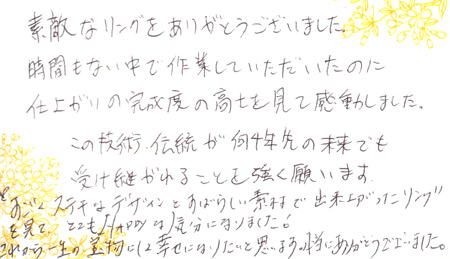 素敵なリングをありがとうございました。
時間もない中で作業していただいたのに
仕上がりの完成度の高さを見て感動しました。
この技術、伝統が何十年先の未来でも
受け継がれることを強く願います。
すごくステキなデザインとすばらしい素材で出来上がったリング
を見て、とてもHAPPYな気分になりました！
これから一生の宝物にして幸せになりたいと思います。本当にありがとうございました。